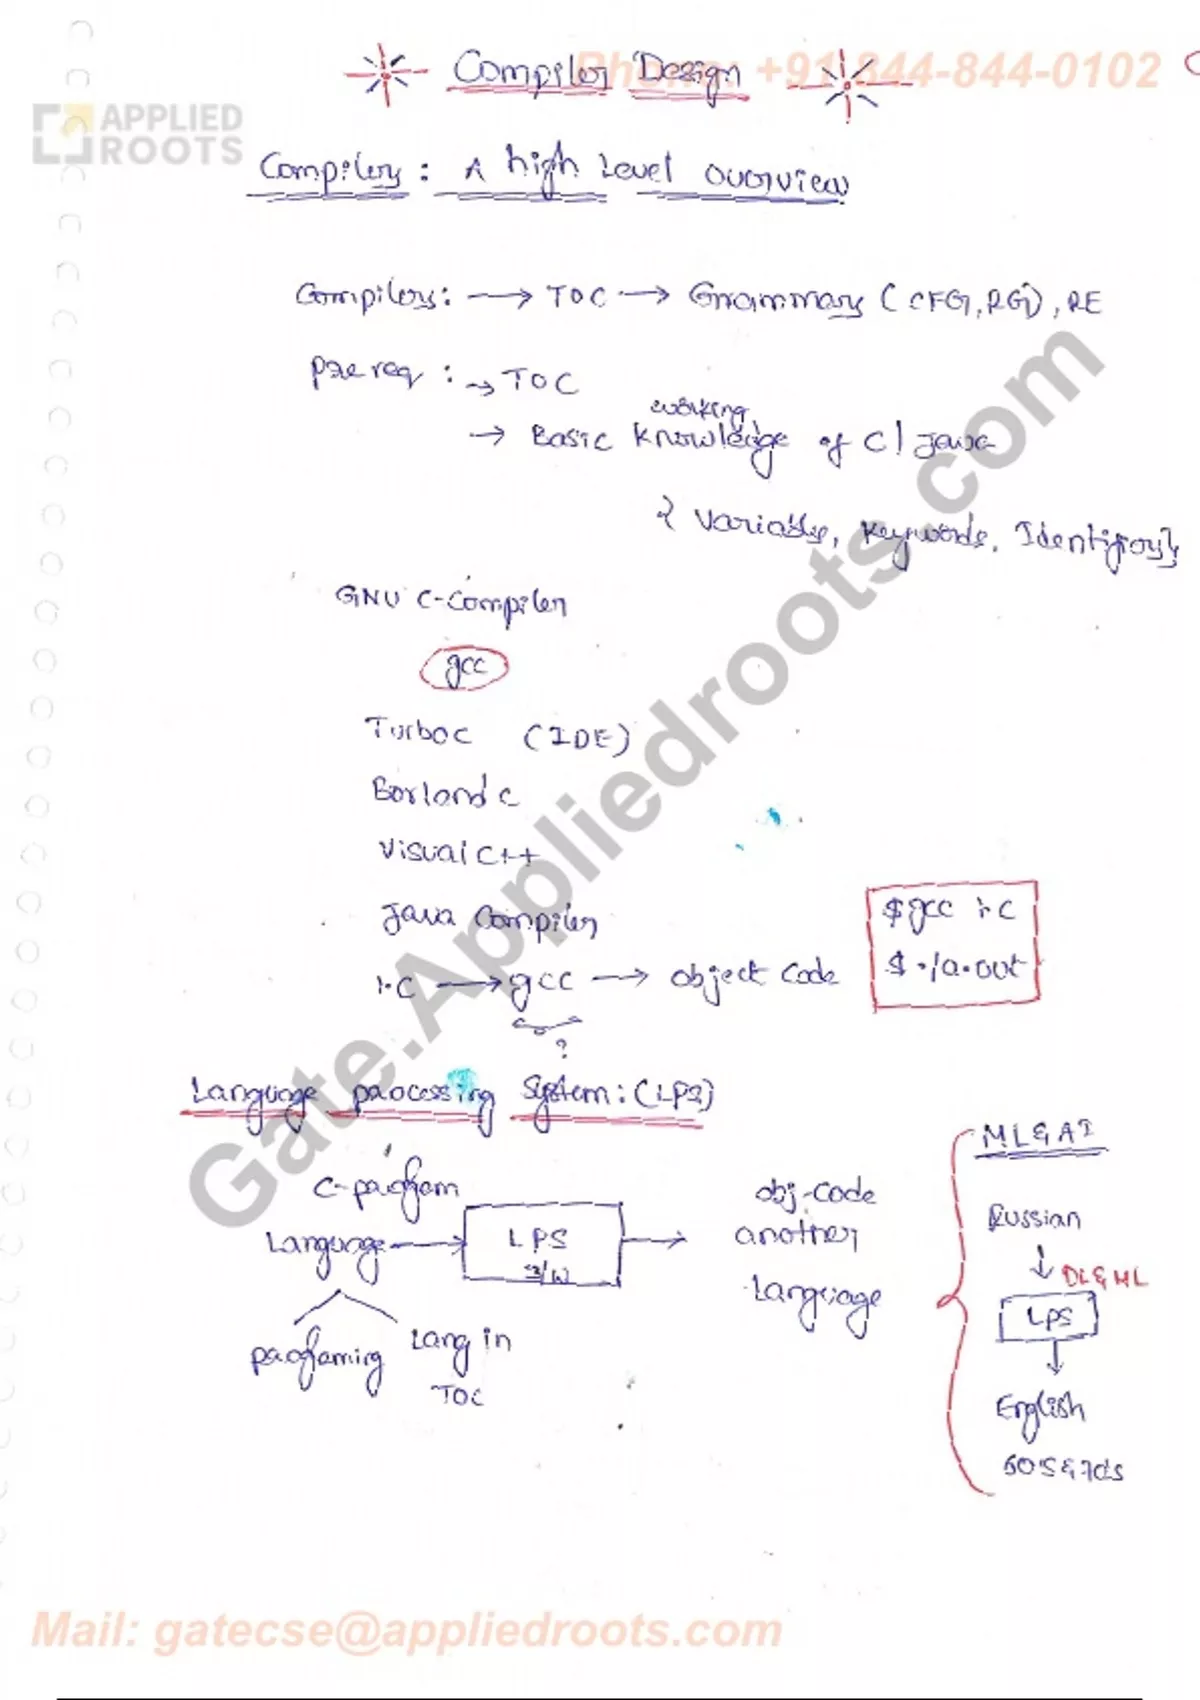 Compiler Design
Phone: +91 844-844-0102
APPLIED
ROOTS
Compilers: A high Level overview
Compilers: → TOC → Grammars (CFG, RG), RE
Prereq: → TOC
working
→ Basic knowledge of C/Java
{ Variables, Keywords, Identifiers}
GNU C-Compiler
gcc
Turbo C (IDE)
Borland C
Visual C++
Java Compiler
1.C → gcc → object code
?
$ gcc 1.C
$ ./a.out
Language processing System: (LPS)
C-program
Language → LPS →
S/W
obj-code
another
language
programing
Lang in
TOC
ML & AI
Russian
↓ DL & ML
LPS
↓
English
60's & 70's
Gate.Appliedroots.com
Mail: gatecse@appliedroots.com